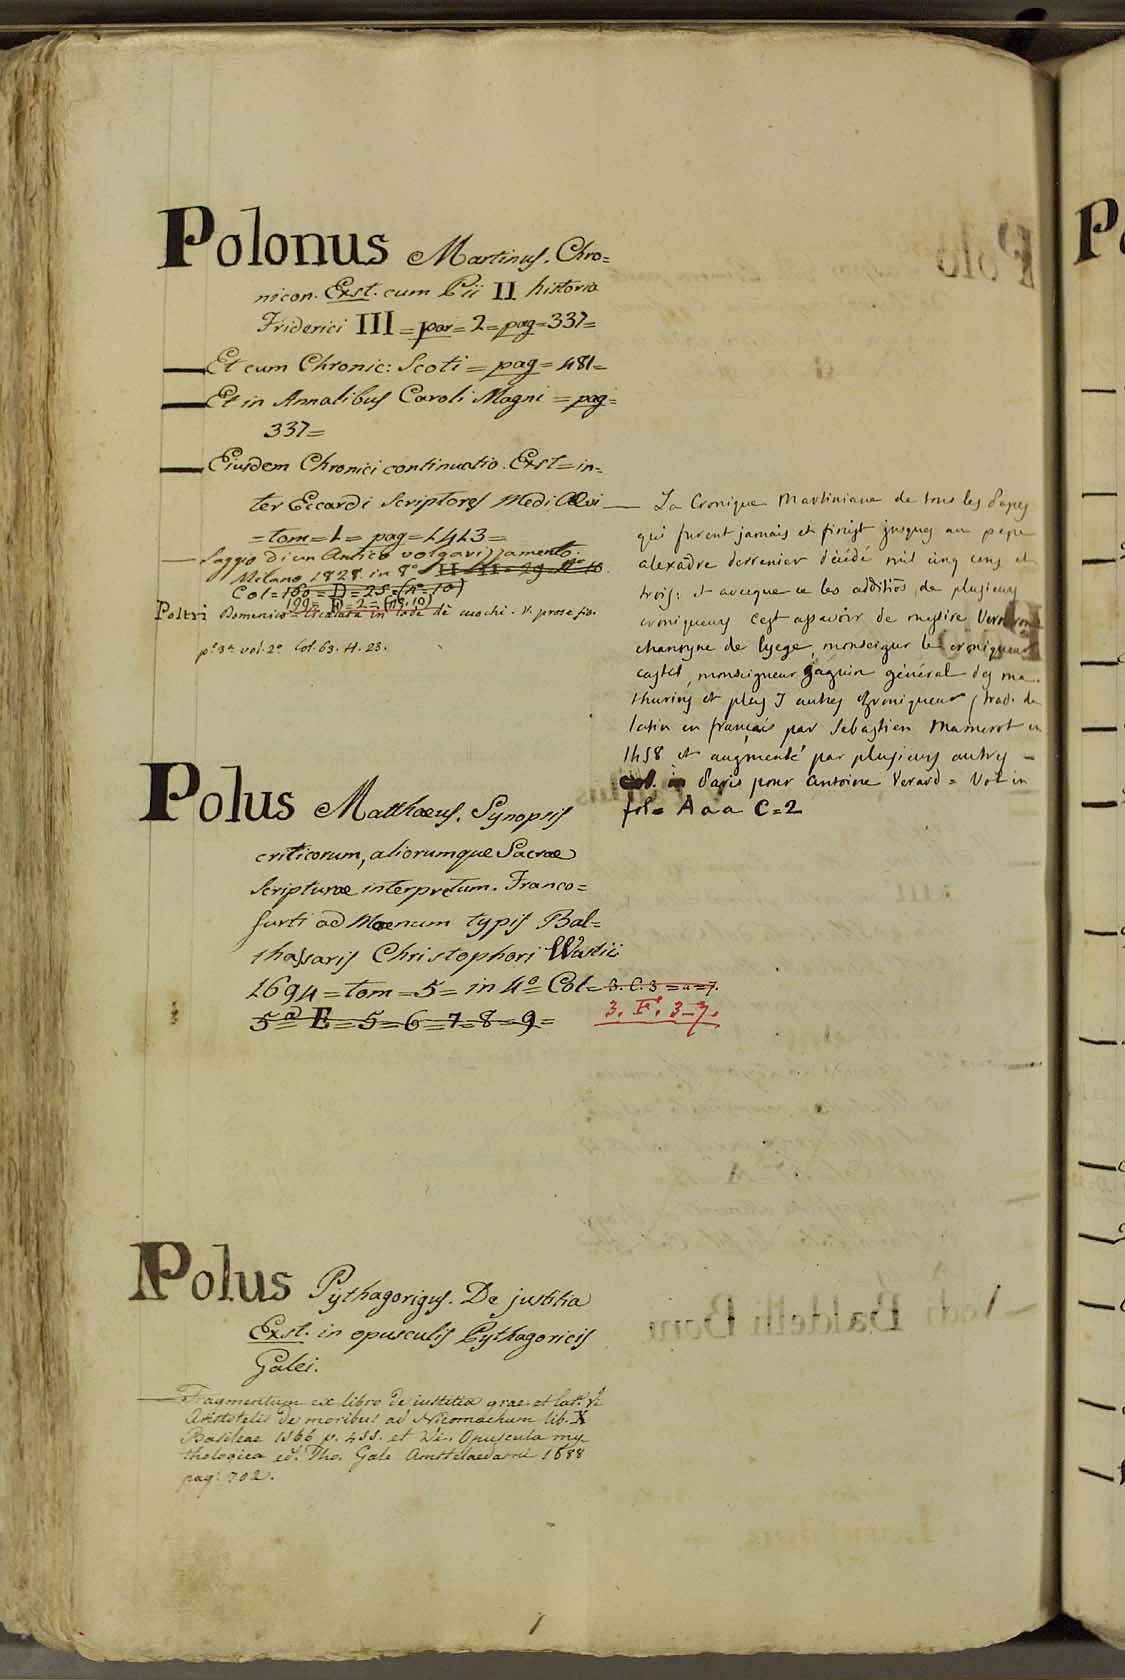 Polonus Martinus. Chro=
nicon. Exst. cum Pii II historia
Friderici III = par = 2 = pag = 337 =
Et cum Chronic: Scoti = pag = 481 =
Et in Annalibus Caroli Magni = pag =
337 =
Eiusdem Chronici continuatio. Exst = in=
ter Eccardi Scriptores Medi Aevi
= tom = 1 = pag = 1413 =
Saggio di un Antico volgarizzamento.
Milano 1828. in 8°
Col = 160 = D = 25 = (n° = 10)
199 = F = 2 = (n°. 10)
Poltri Domenico = Cicalata in lode de cuochi. V. prose fio.
p.e 3a. vol. 2° Col. 63. H. 23.
La Cronique Martiniane de tous les Papes
qui furent jamais et finist jusques au pape
alexadre derrenier décédé mil cinq cens et
trois: et avecque ce les additiõs de plusieurs
croniqueurs cest assavoir de messire Verneron
chanoyne de lyege, monseigur le croniqueur
castel, monseigneur gaguin général des ma
thurins et plus autres croniqueurs (trad. du
latin en français par Sebastien Mamerot en
1458 et augmenté par plusieurs autres =
Paris pour Antoine Verard = Vol in
fol = A a a C = 2
Polus Matthaeus. Synopsis
criticorum, aliorumque Sacrae
Scripturae interpretum. Franco=
furti ad Moenum typis Bal=
thassaris Christophori Wustii
1694 = tom = 5 = in 4° = Col = 3. C. 3 = a = 7.
5a E = 5 = 6 = 7 = 8 = 9 =
3. F. 3-7.
Polus Pythagoricus. De justitia
Exst. in opusculis Pythagoricis
Galei.
Fragmentum ex libro de iustitia grae. et lat. V.
Aristotelis de moribus ad Nicomachum lib. X
Basileae 1566 p. 455. et Vi. Opuscula my
thologica ed. Tho. Gale Amstelaedami 1688
pag. 702.